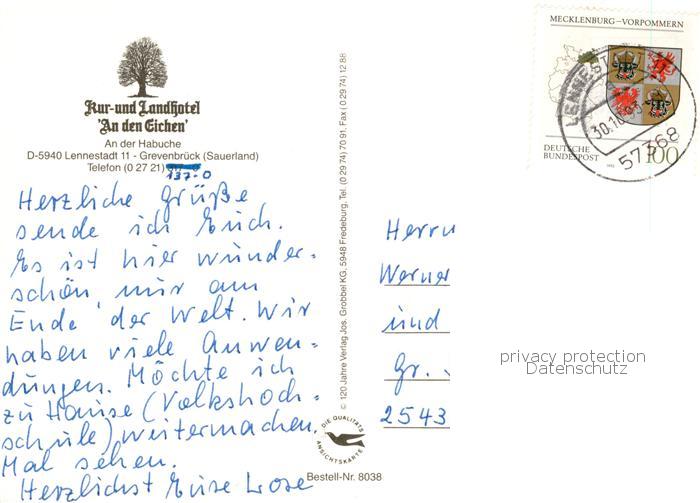 Kur- und Landhotel
'An den Eichen'
An der Habuche
D-5940 Lennestadt 11 - Grevenbrück (Sauerland)
Telefon (0 27 21)
137-0
Herzliche Grüße
sende ich Euch.
Es ist hier wunder-
schön, nur am
Ende der Welt. Wir
haben viele Anwen-
dungen. Möchte ich
zu Hause (Volkshoch-
schule) weitermachen.
Mal sehen.
Herzlichst Eure
© 120 Jahre Verlag Jos. Grobbel KG, 5948 Fredeburg, Tel. (0 29 74) 70 91, Fax (0 29 74) 12 88
DIE QUALITÄTS
ANSICHTSKARTE
Bestell-Nr. 8038
MECKLENBURG-VORPOMMERN
DEUTSCHE
BUNDESPOST
100
57368
Herrn
Werner
und
Gr.
2543
privacy protection
Datenschutz